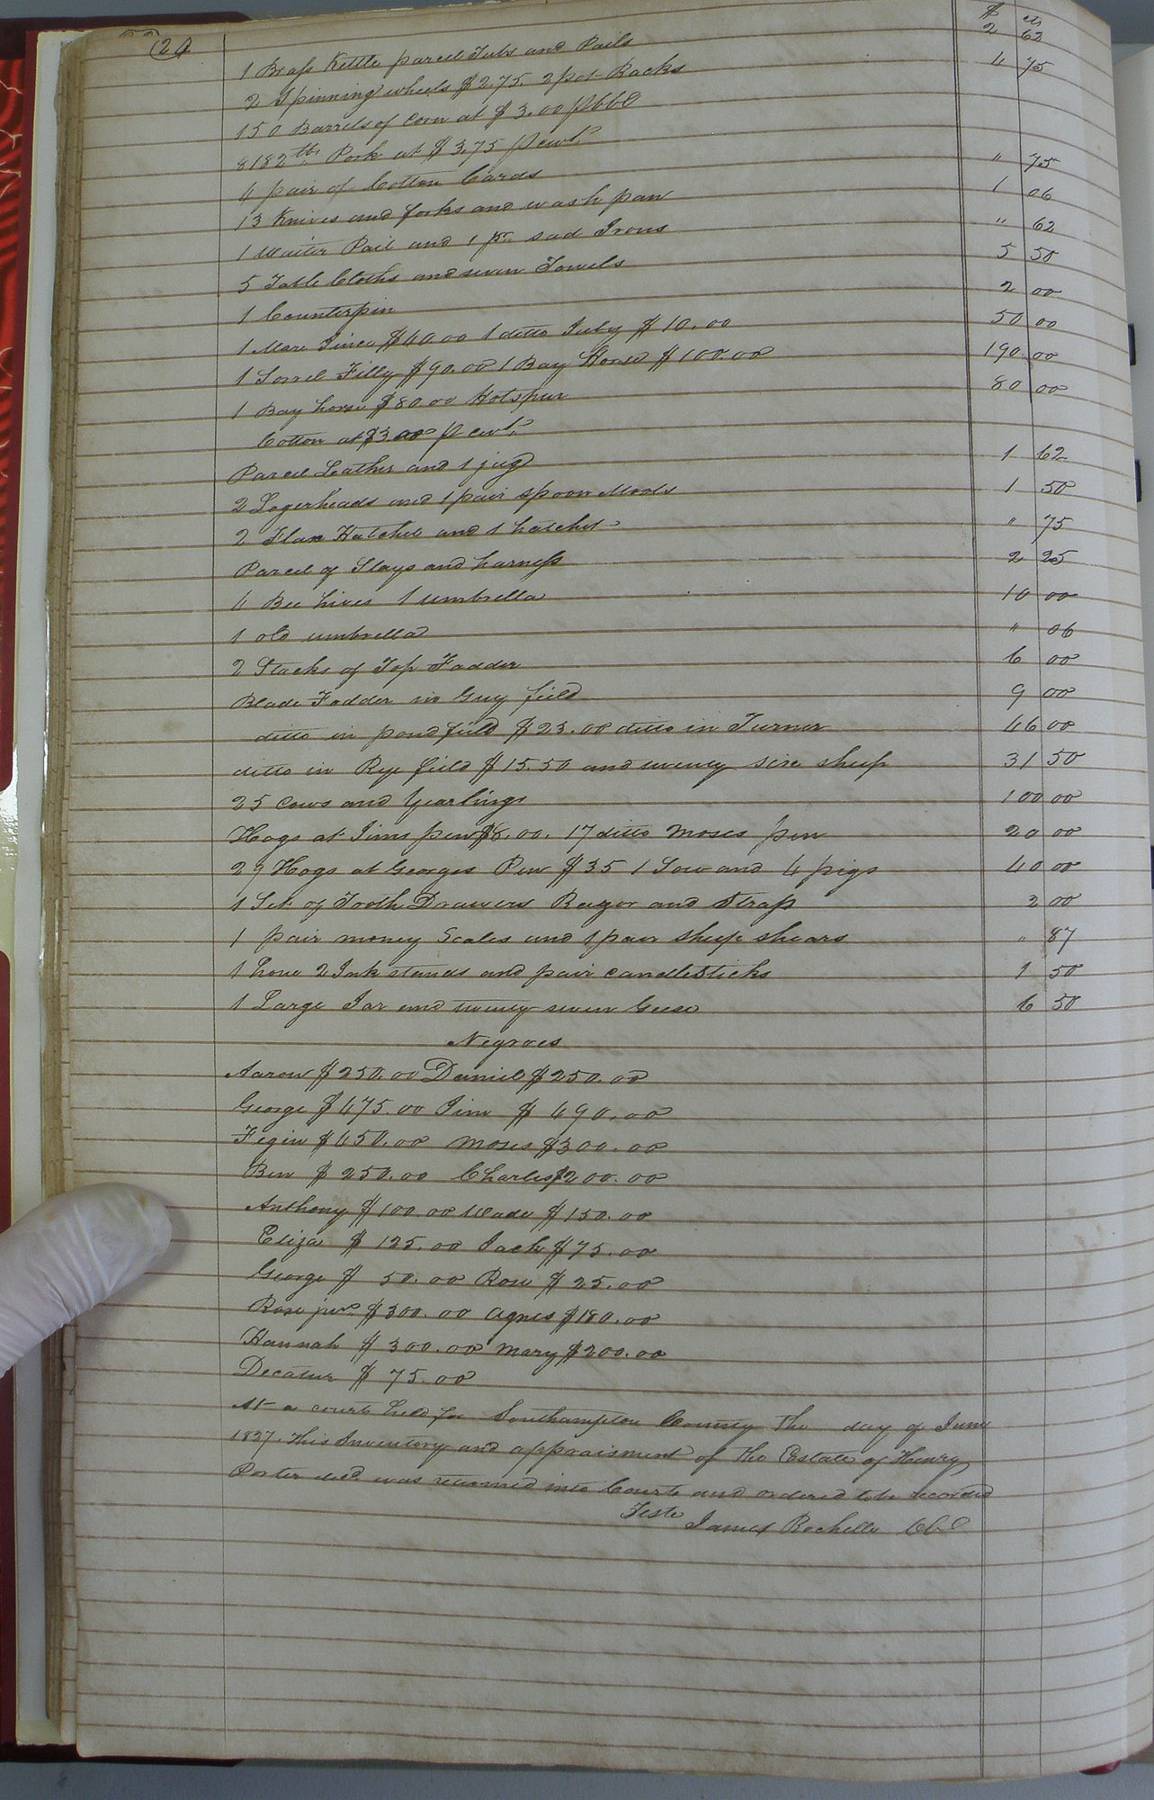 $ cts
1 Brass Kettle parcel Tubs and Pails 2 62
2 Spinning wheels $2.75. 2 pot Racks 4 75
150 Barrels of Corn at $3.00 p bbl
8182 lbs Pork at $3.75 p cwt
4 pair of Cotton Cards " 75
13 Knives and forks and wash pan 1 06
1 Waiter Pail and 1 pr. sad Irons " 62
5 Table Cloths and seven Towels 5 50
1 Counterpin 2 00
1 Mare $40.00 1 ditto July $10.00 50 00
1 Sorrel Filly $90.00 1 Bay Horse $100.00 190 00
1 Bay horse $80.00 Hotspur 80 00
Cotton at $3.00 p cwt
Parcel Leather and 1 jug 1 62
2 Logerheads and 1 pair spoon Molds 1 50
2 Flax Hatchel and 1 hatchet " 75
Parcel of Slays and harness 2 25
4 Bee hives 1 umbrella 10 00
1 old umbrella " 06
2 Stacks of Top Fodder 6 00
Blade Fodder in Guy field 9 00
ditto in pond field $23.00 ditto in Turner 46 00
ditto in Rye field $15.50 and twenty six sheep 31 50
25 Cows and Yearlings 100 00
Hogs at Jims pen $8.00. 17 ditto Moses pen 20 00
29 Hogs at Georges Pen $35 1 Sow and 4 pigs 40 00
1 Set of Tooth Drawers Razor and Strap 2 00
1 pair money Scales and 1 pair sheep shears " 87
1 hone 2 Ink stands and pair candlesticks 1 50
1 Large Jar and twenty seven Geese 6 50
Negroes
Aaron $250.00 Daniel $250.00
George $475.00 Jim $490.00
$450.00 Moses $300.00
Ben $250.00 Charles $200.00
Anthony $100.00 Wade $150.00
Eliza $125.00 Jack $75.00
George $50.00 Rose $25.00
Rose junr $300.00 Agnes $180.00
Hannah $300.00 Mary $200.00
Decatur $75.00
At a court held for Southampton County the day of June
1837. This Inventory and appraisment of the Estate of Henry
Porter decd was returned into Court and ordered to be recorded
Teste
James Rochelle